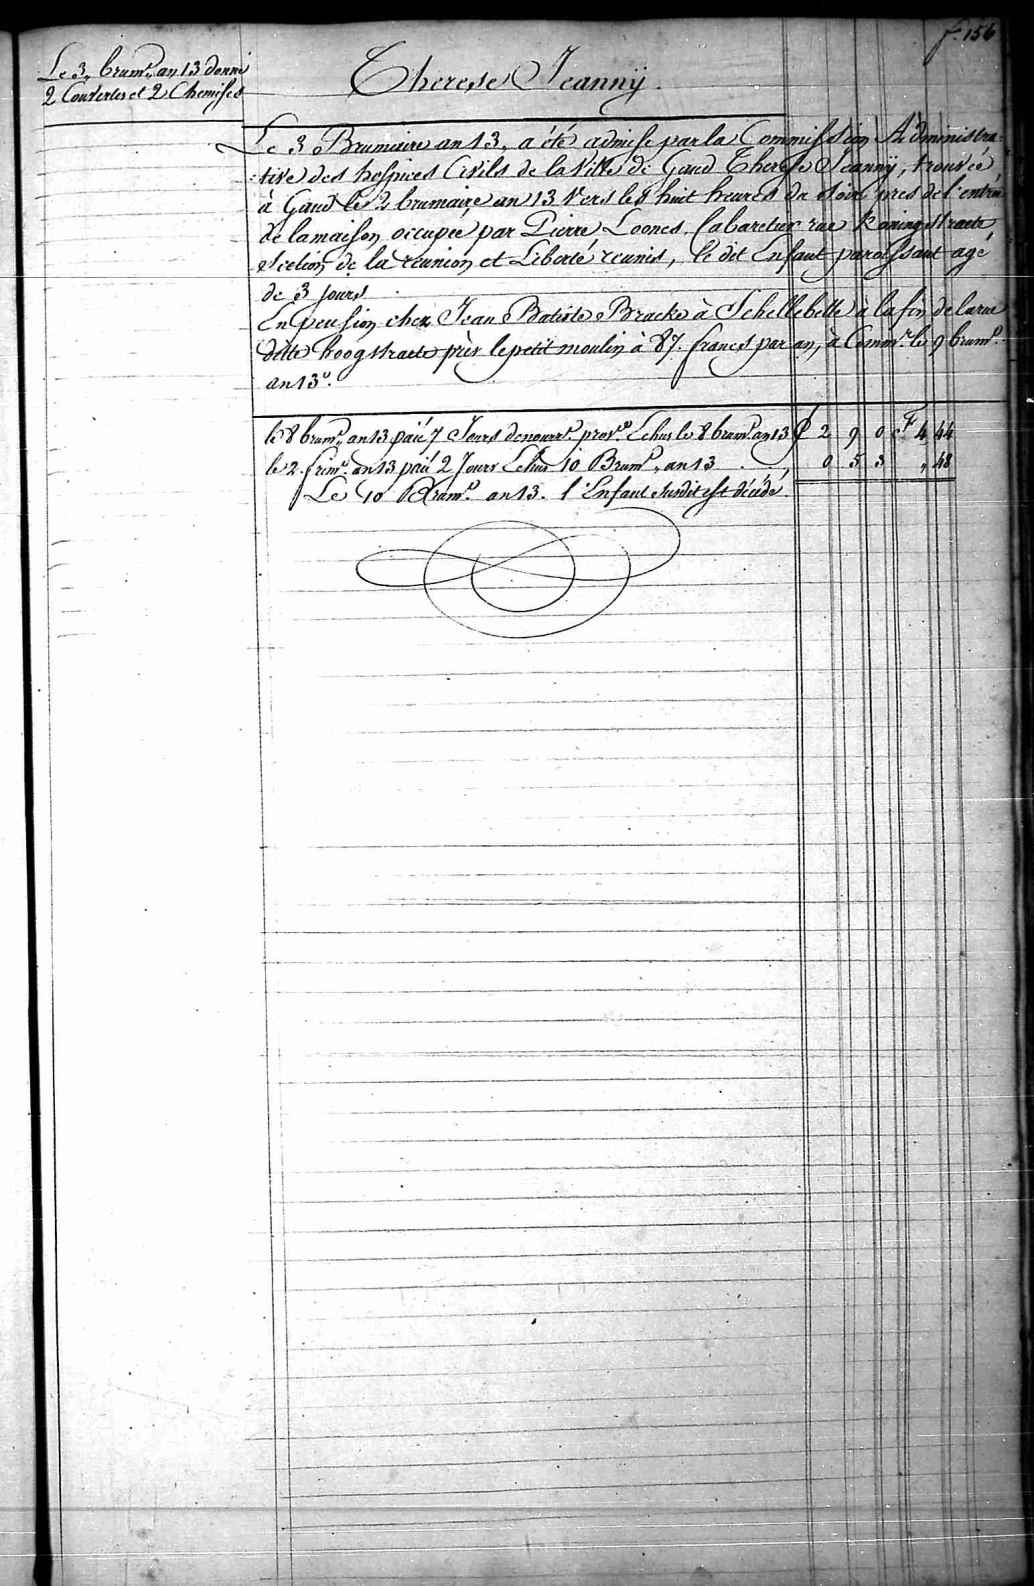 f. 156
Le 3, brum.e an 13 donné
2 Couvertes et 2 Chemises
Therese Jeannÿ.
Le 3 Brumaire an 13, a été admise par la Commission Administra-
:tive des hospices Civils de la Ville de Gand Therese Jeannÿ, trouvée
à Gand le 2 brumaire an 13 Vers les huit heures du Soir pres de l'entrée
de la maison occupée par Pierre Loones, Cabaretier rue Koningstraete
Section de la réunion et Liberté reunis, le dit Enfant paroissant agé
de 3 jours
En pension chez Jean Batiste Bracke à Schellebelle à la fin de la rue
ditte hoogstraete près le petit moulin à 87. francs par an, à Comm.r le 9 brum.e
an 13e.
le 8 brum.e an 13 paié 7 Jours de nourr.e prov.re Echus le 8 brum.e an 13 £ 2 9 0 F 4 44
le 2 frim.e an 13 paié 2 Jours Echus 10 Brum.e an 13 . . , 0 5 3 " 48
Le 10 Brum.e an 13. l'Enfant Susdit est décédé.